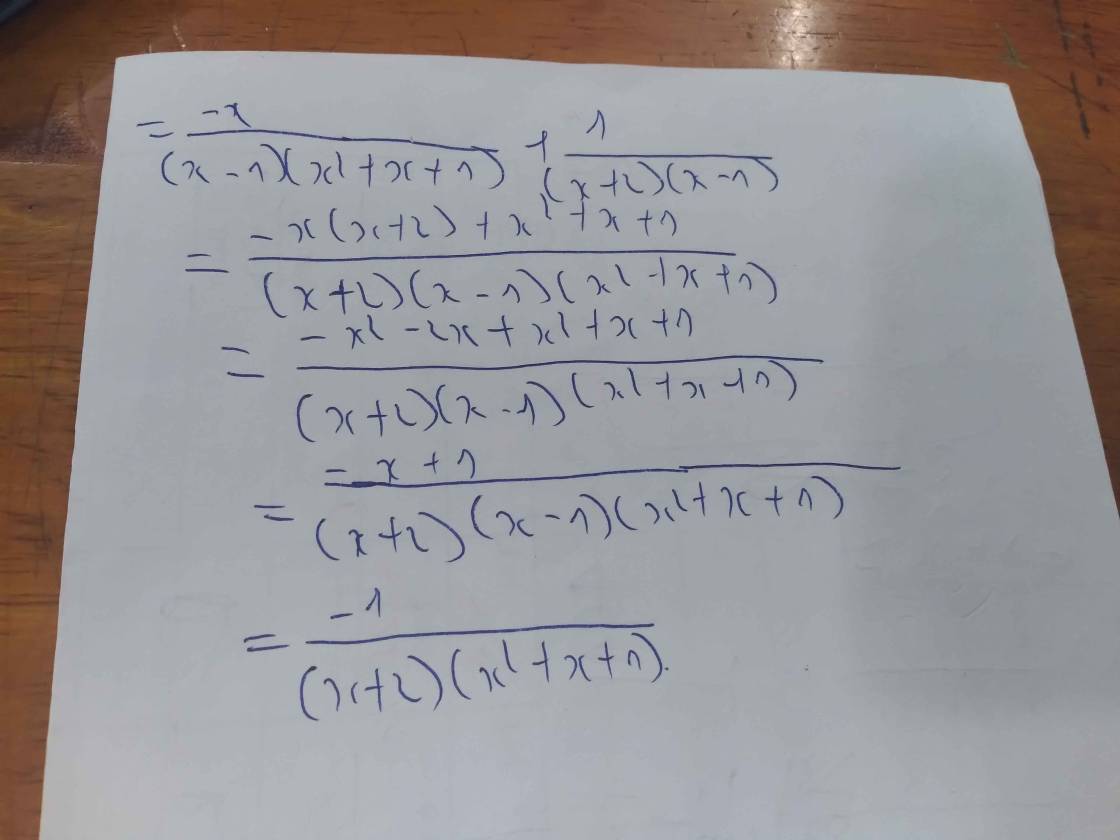 = -x / (x - 1)(x² + x + 1) + 1 / (x+2)(x - 1)
= -x(x+2) + x² + x + 1 / (x+2)(x - 1)(x² + x + 1)
= -x² - 2x + x² + x + 1 / (x+2)(x - 1)(x² + x + 1)
= -x + 1 / (x+2)(x - 1)(x² + x + 1)
= -1 / (x+2)(x² + x + 1).